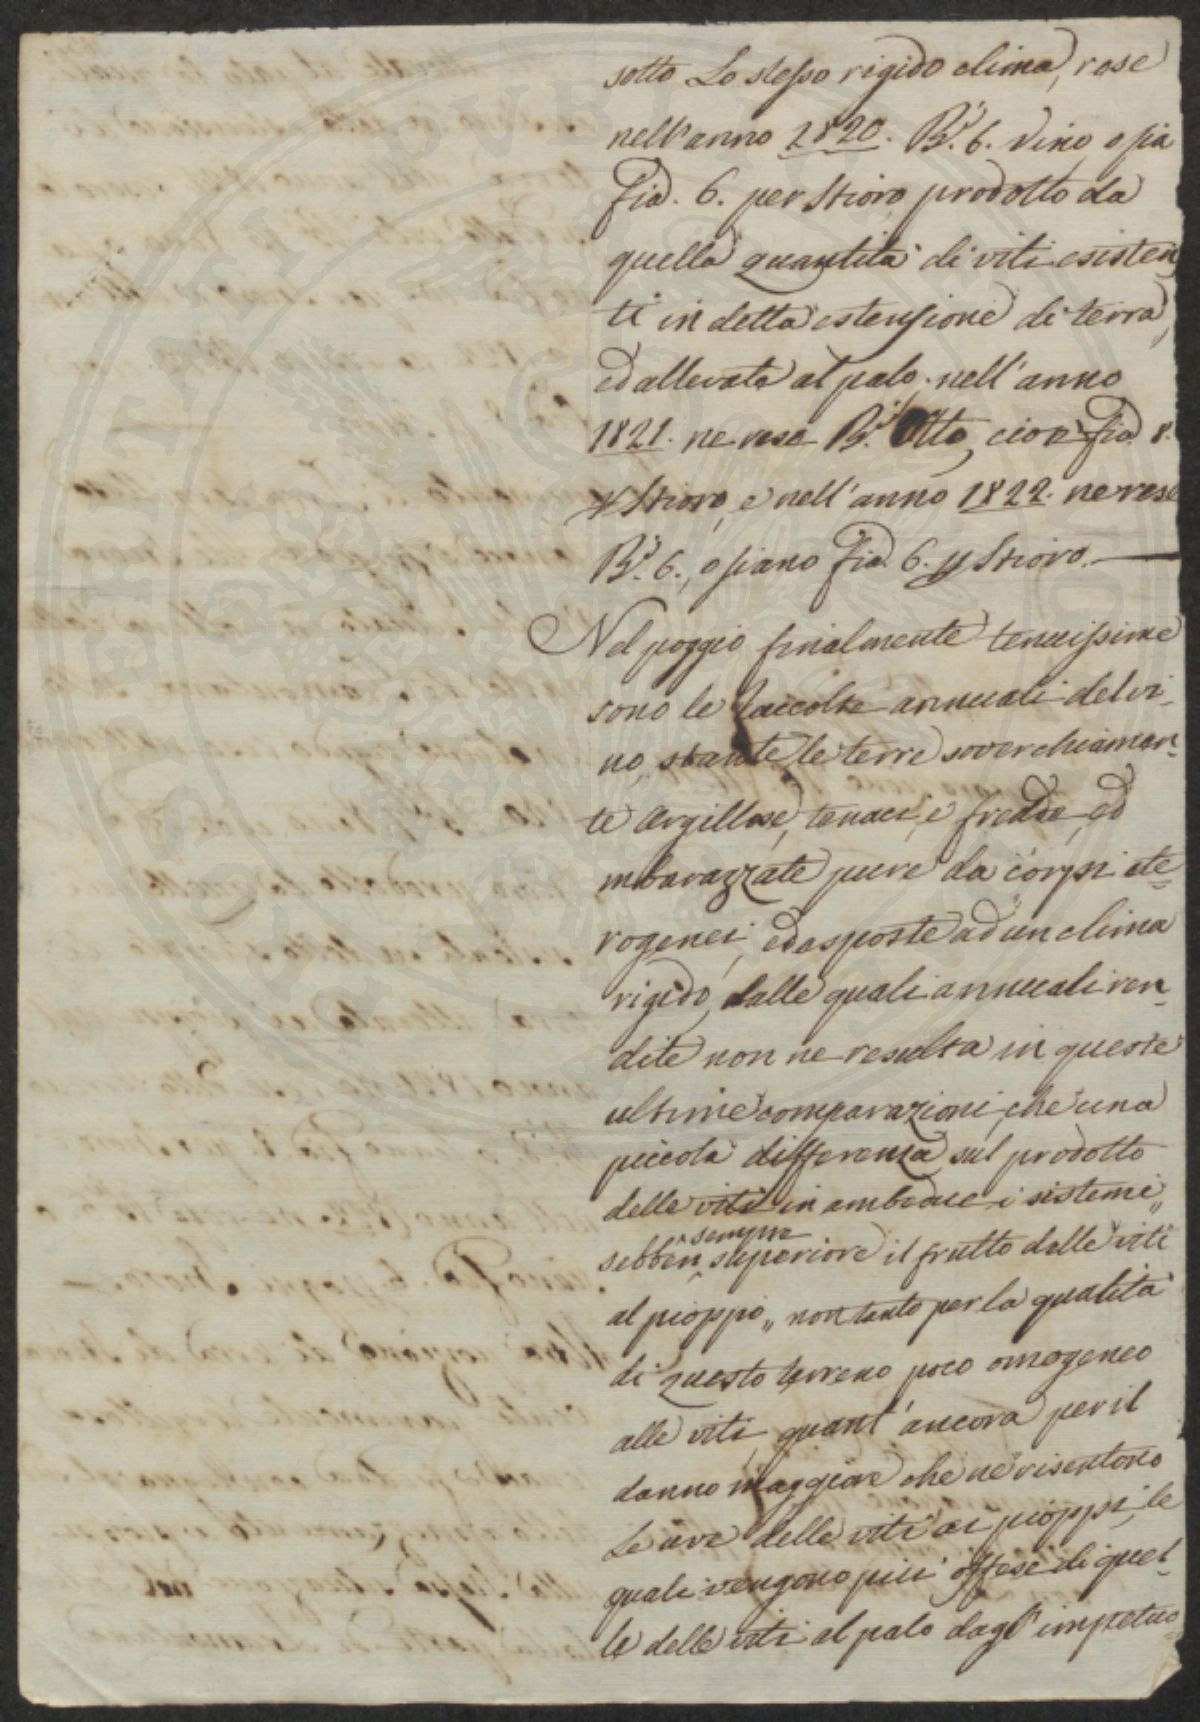 sotto Lo stesso rigido clima, rese
nell'anno 1820. B.i 6. vino, o sia
Fia. 6. per Stioro, prodotto da
quella quantità di viti esisten
ti in detta estensione di terra,
ed allevate al palo. nell'anno
1821. ne rese B.i Otto, cioè Fia. 8.
p Stioro, e nell'anno 1822. ne rese
B.i 6., o siano Fia. 6. p Stioro.
Nel poggio finalmente tenuissime
sono le Raccolte annuali del vi-
no, stante le terre soverchiamen-
te Argillose, tenaci, e fredde, ed
imbarazzate pure da corpi ete-
rogenei, ed esposte ad un clima
rigido, dalle quali annuali ren-
dite non ne resulta in queste
ultime comparazioni, che una
piccola differenza sul prodotto
delle viti in ambedue i sistemi,,
sempre
sebben superiore il frutto delle viti
al pioppo,, non tanto per la qualità
di questo terreno poco omogeneo
alle viti, quant'ancora per il
danno maggiore che ne risentono
Le uve delle viti ai pioppi, le
quali vengono più offese di quel-
le delle viti al palo dagl'impetuo